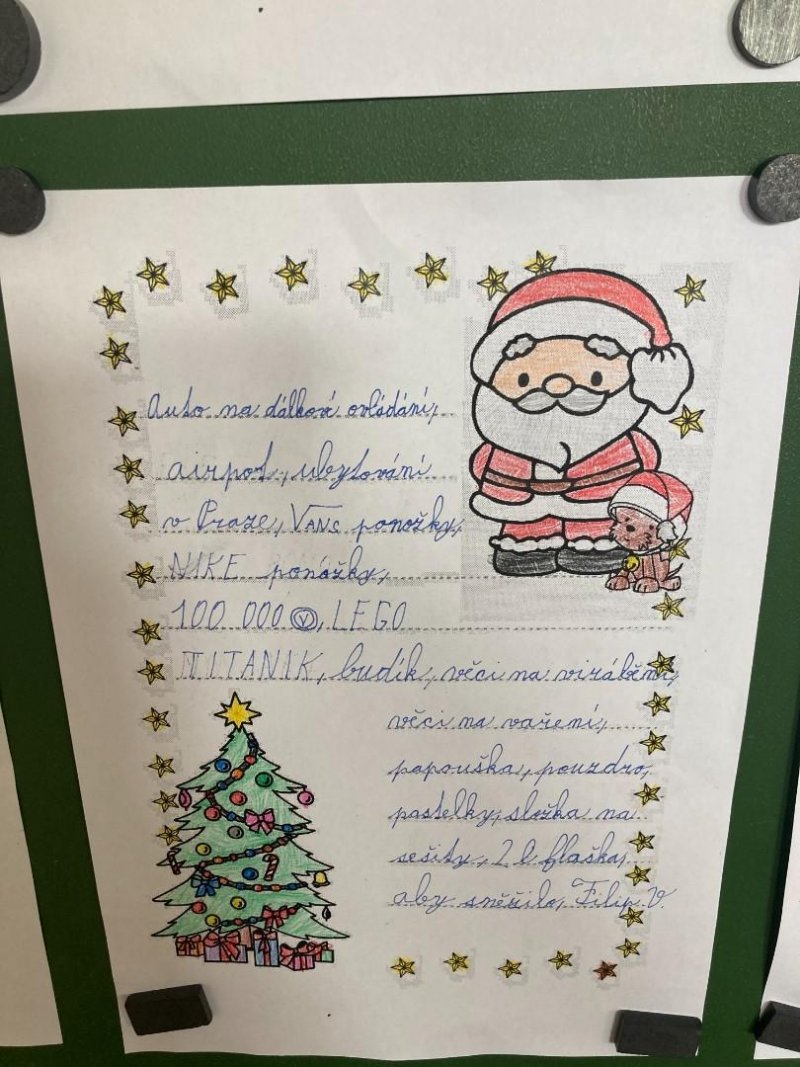 Auto na dálková ovládání,
airpot, ubytování
v Praze, VANS ponožky,
NIKE ponožky,
100 000 Ⓥ, LEGO
TITANIK, budík, věci na virábění,
věci na vaření,
papouška, pouzdro,
pastelky, složka na
sešity, 2 l flaška,
aby sněžilo, Filip V.